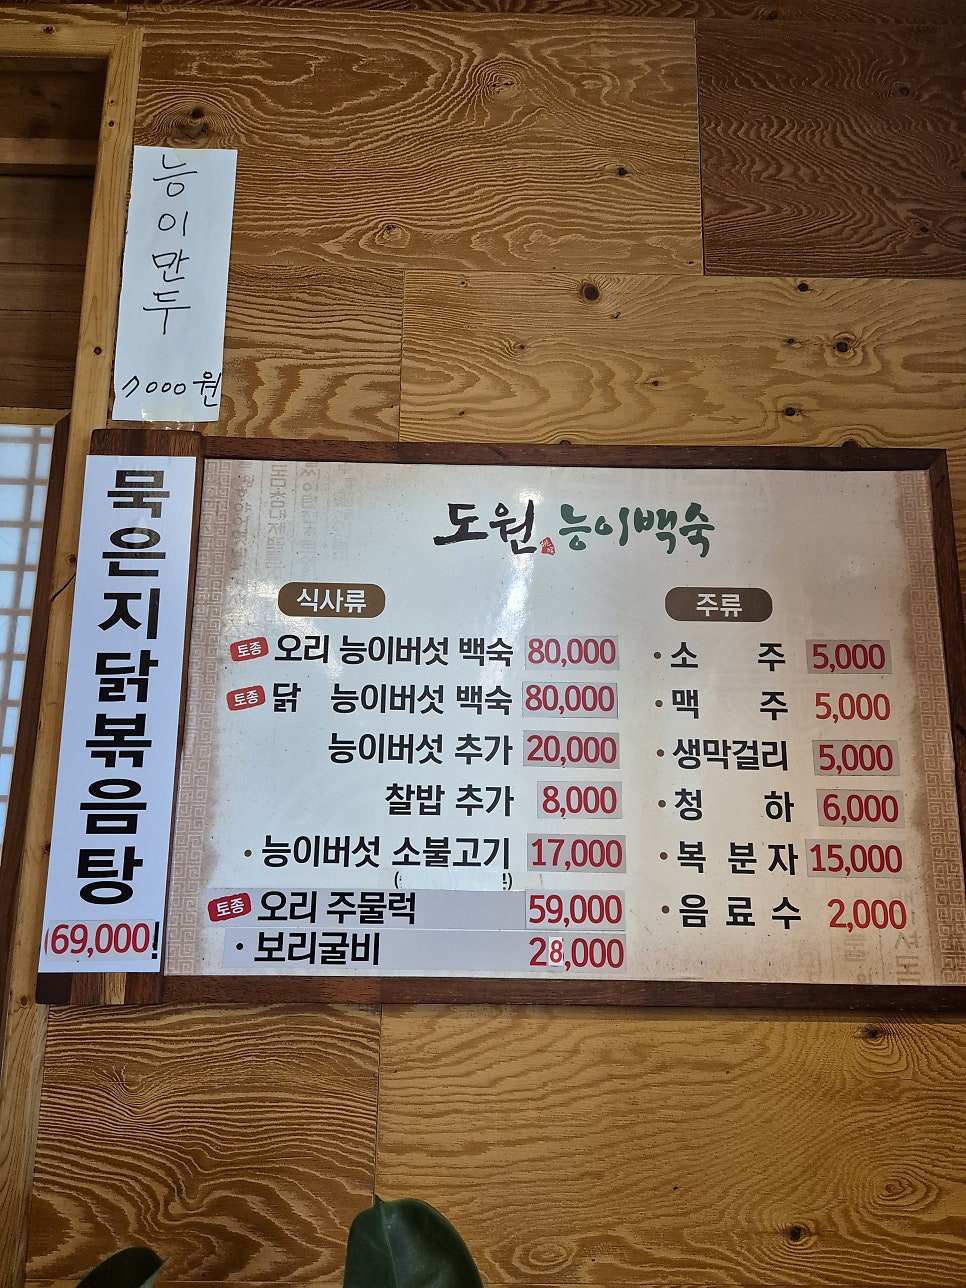 능이만두
7000원
묵은지닭볶음탕
69,000
도원 능이백숙
식사류
토종 오리 능이버섯 백숙 80,000
토종 닭 능이버섯 백숙 80,000
능이버섯 추가 20,000
찰밥 추가 8,000
· 능이버섯 소불고기 17,000
토종 오리 주물럭 59,000
· 보리굴비 28,000
주류
· 소 주 5,000
· 맥 주 5,000
· 생막걸리 5,000
· 청 하 6,000
· 복 분 자 15,000
· 음 료 수 2,000